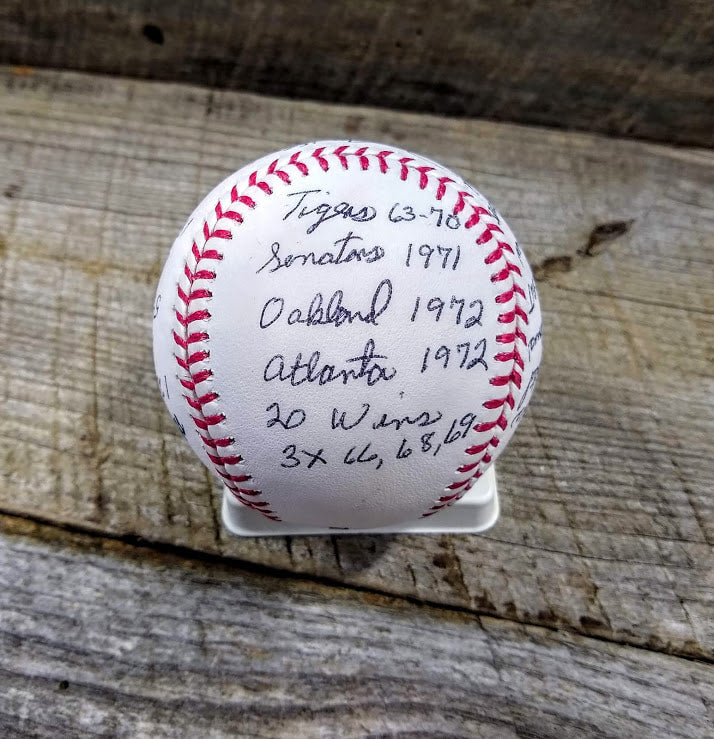 Tigers 63-70
Senators 1971
Oakland 1972
Atlanta 1972
20 Wins
3X 66, 68, 69